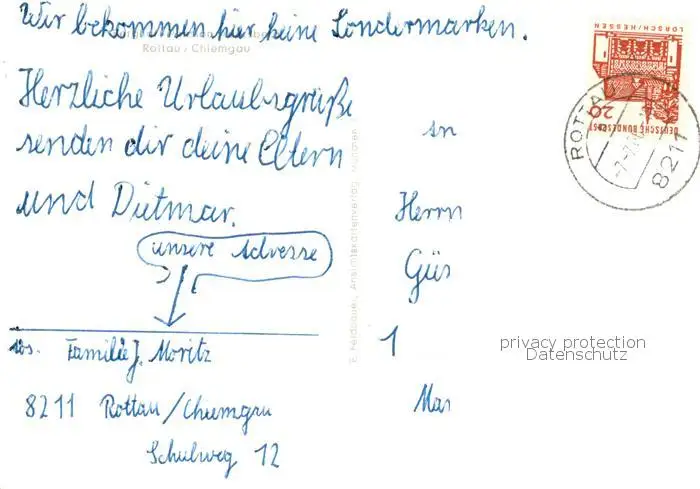 Wir bekommen hier keine Sondermarken.
Rottau / Chiemgau
Herzliche Urlaubsgrüße
senden dir deine Eltern
und Dietmar.
unsere Adresse
Familie J. Moritz
8211 Rottau/Chiemgau
Schulweg 12
E. Feldbauer, Ansichtskartenverlag, München
an
Herrn
Güs
1
Mar
privacy protection
Datenschutz
LORSCH/HESSEN
20
DEUTSCHE BUNDESPOST
ROTTA
8211